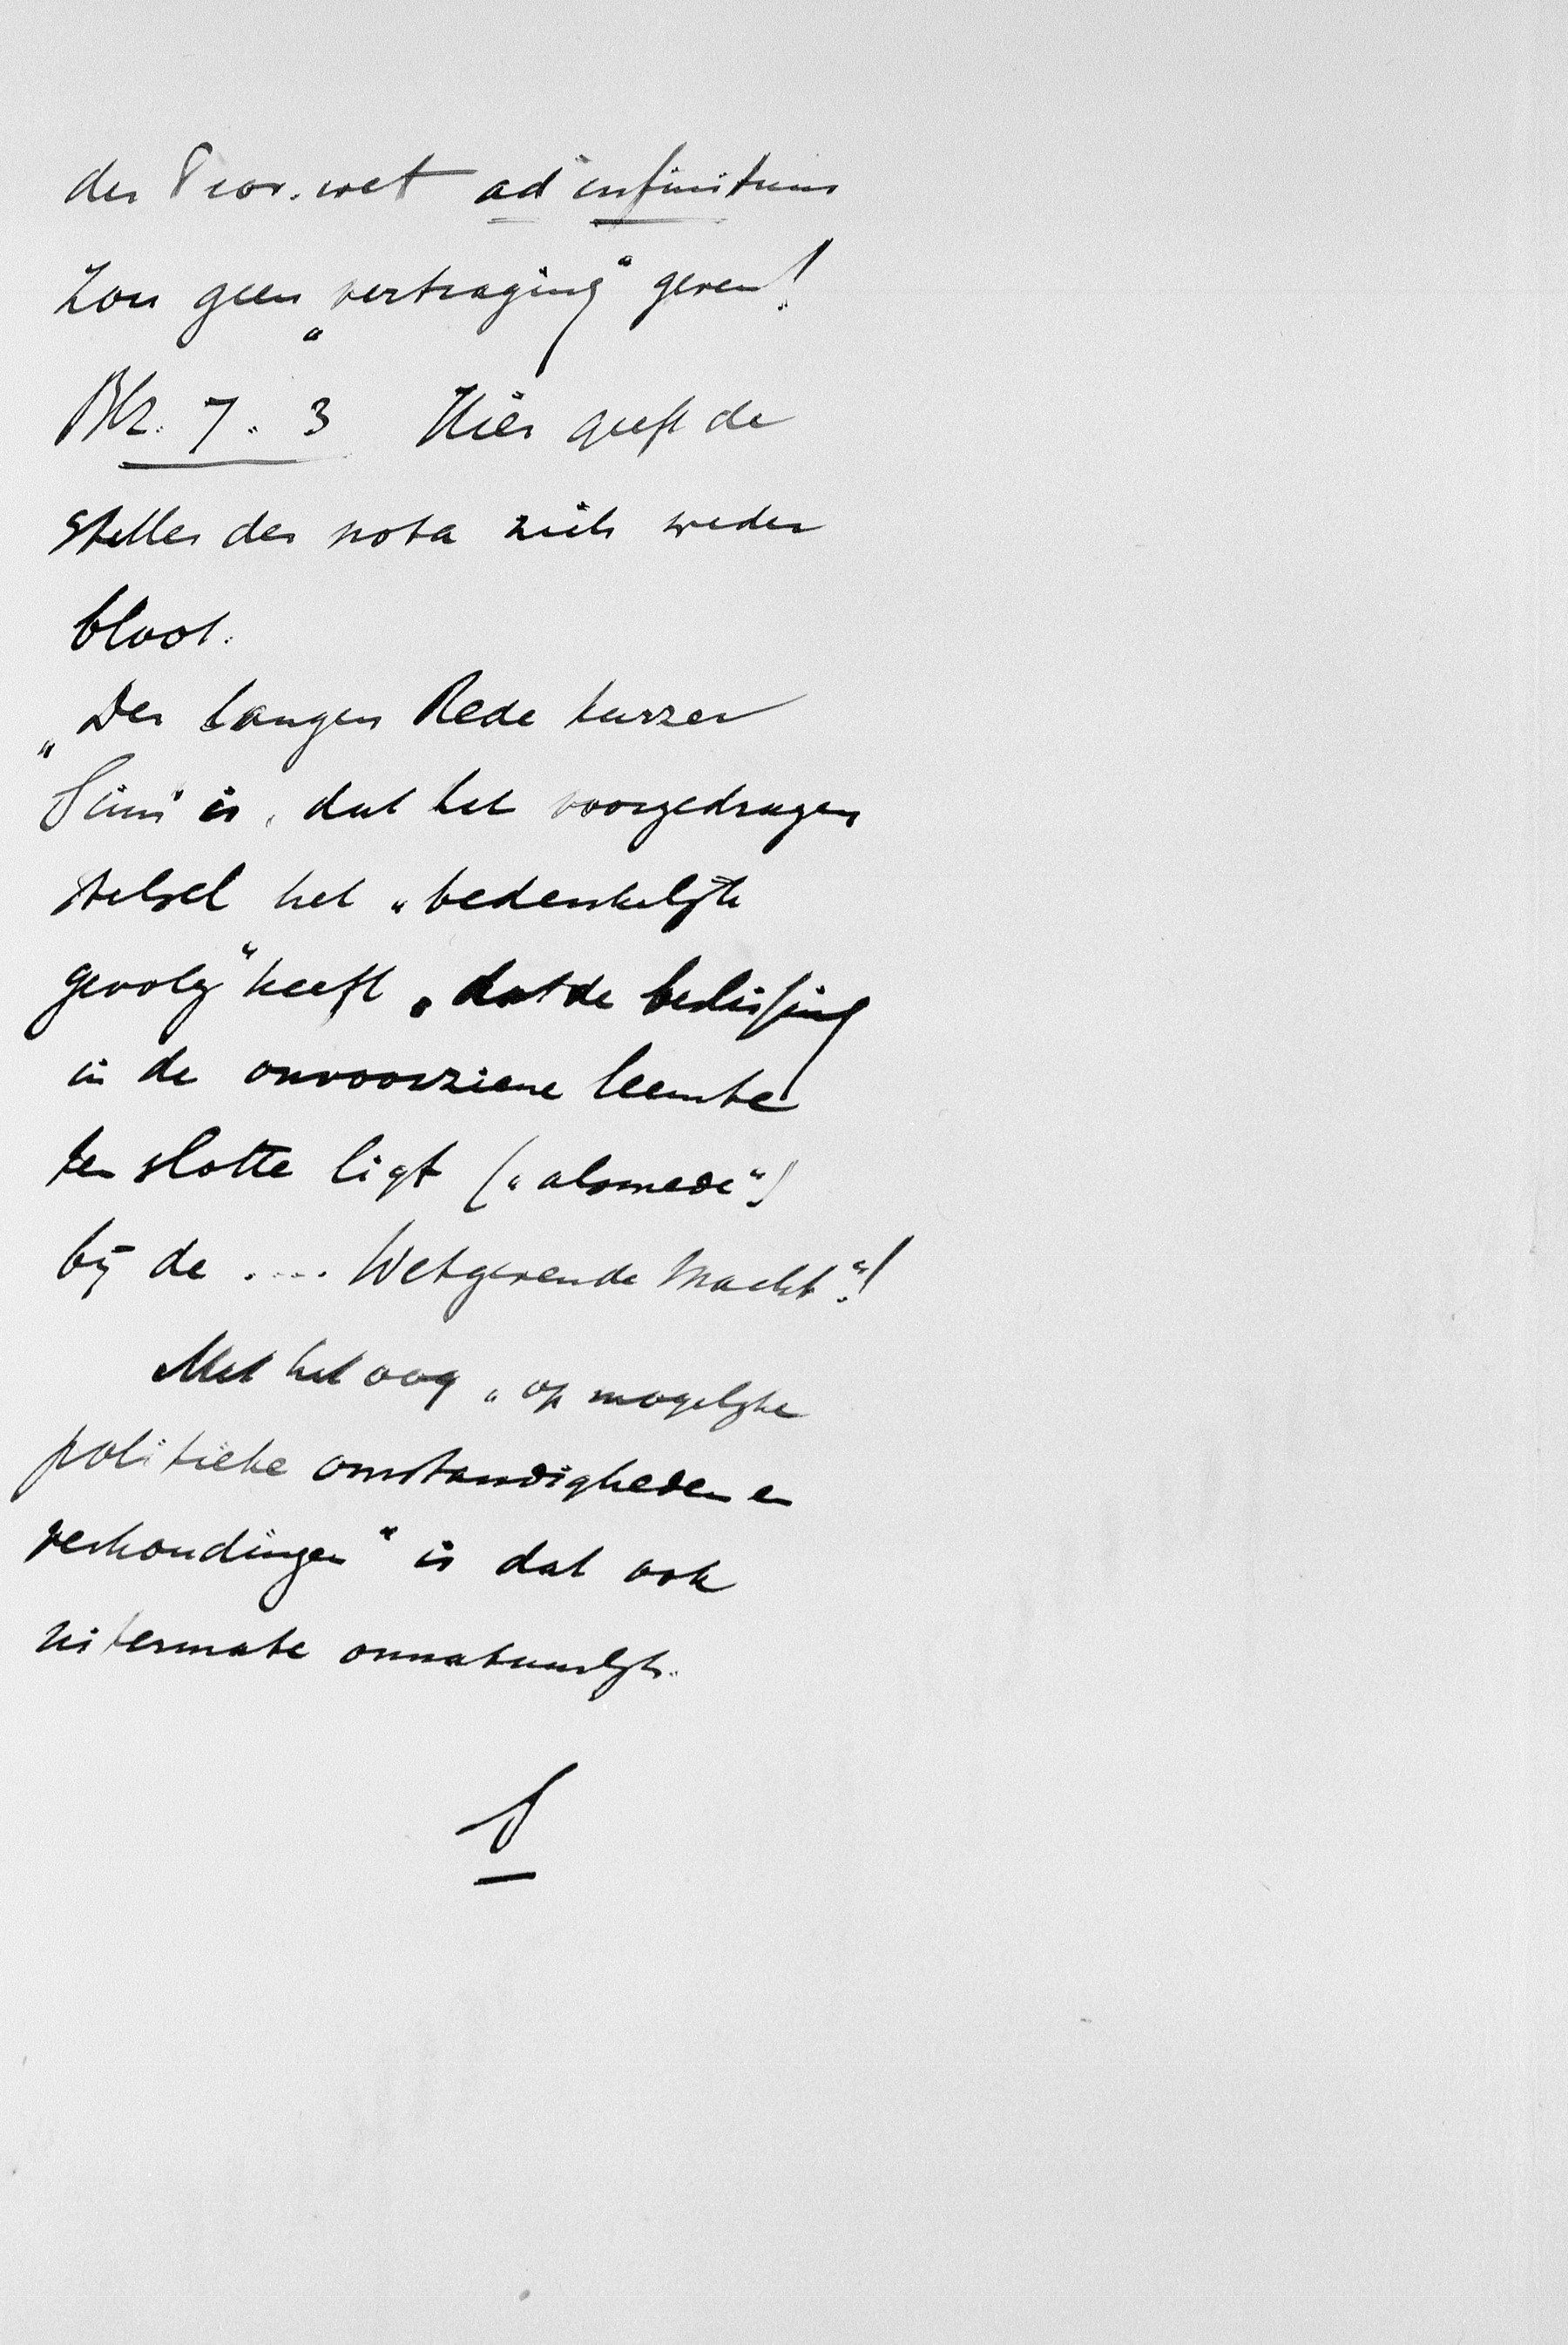 der Prov. wet ad infinitum
zou geen „vertraging" geven!
Blz. 7. 3 Hier geeft de
steller der nota zich weder
bloot.
„Der langen Rede kurzer
Sinn" is, dat het voorgedragen
stelsel het „bedenkelijk
gevolg" heeft „dat de beslissing
in de onvoorziene leemte
ten slotte ligt („alsmede")
bij de .... Wetgevende Macht"!
Met het oog „op mogelijke
politieke omstandigheden en
verhoudingen" is dat ook
uitermate onnatuurlijk.
S